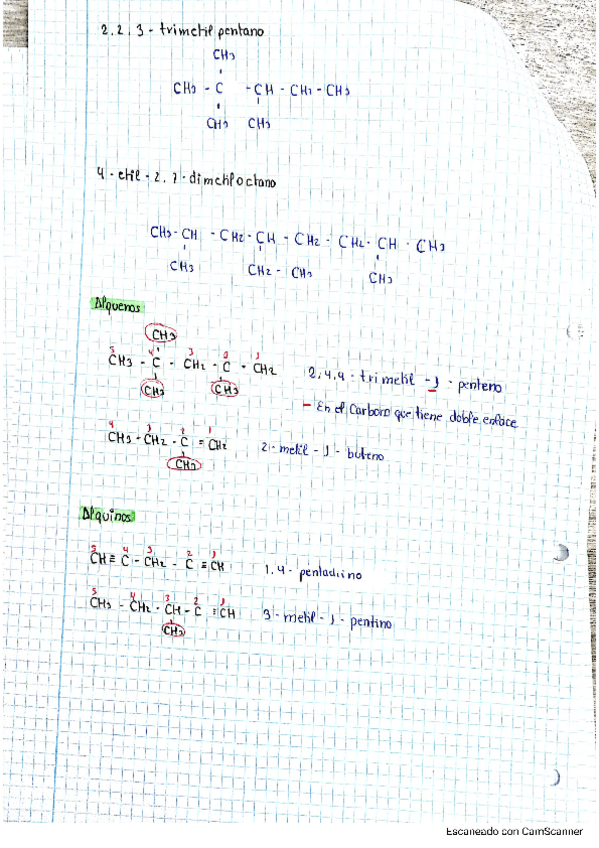 2,2,3 - trimetil pentano
CH3
CH3 - C - CH - CH2 - CH3
CH3 CH3
4 - etil - 2,7 - dimetiloctano
CH3 - CH - CH2 - CH - CH2 - CH2 - CH - CH3
CH3 CH2 - CH3 CH3
Alquenos
CH3
5 4 3 2 1
CH3 - C - CH2 - C - CH2
CH3 CH3
2,4,4 - trimetil - 1 - penteno
- En el Carbono que tiene doble enlace
4 3 2 1
CH3 - CH2 - C = CH2
CH3
2 - metil - 1 - buteno
Alquinos
5 4 3 2 1
CH ≡ C - CH2 - C ≡ CH
1,4 - pentadiino
5 4 3 2 1
CH3 - CH2 - CH - C ≡ CH
CH3
3 - metil - 1 - pentino
Escaneado con CamScanner